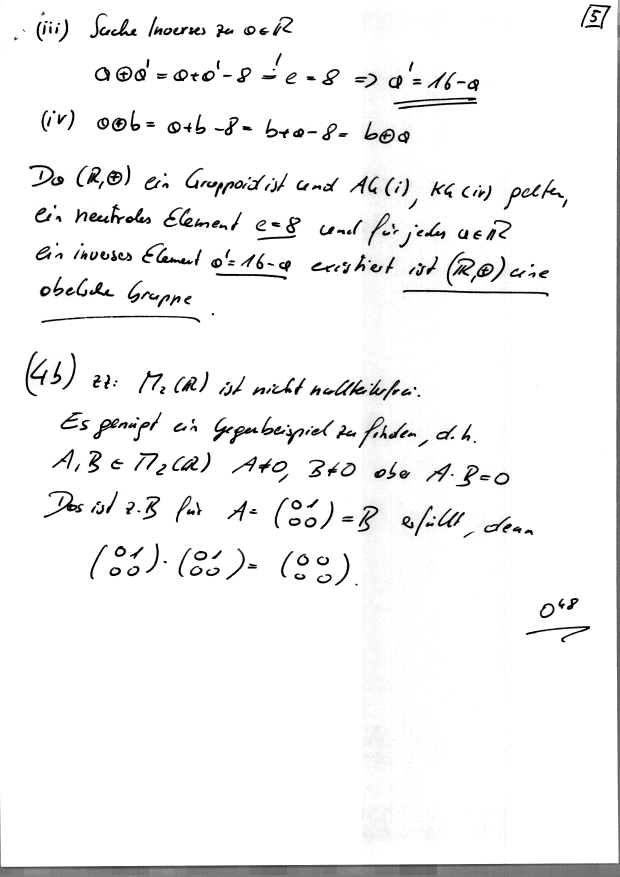 5
(iii) Suche Inverses zu a ∈ ℝ
a ⊕ a' = a + a' - 8 =! e = 8 => a' = 16 - a
(iv) a ⊕ b = a + b - 8 = b + a - 8 = b ⊕ a
Da (ℝ, ⊕) ein Gruppoid ist und AG (i), KG (iv) gelten,
ein neutrales Element e = 8 und für jedes a ∈ ℝ
ein inverses Element a' = 16 - a existiert ist (ℝ, ⊕) eine
abelsche Gruppe.
(4b) zz: M₂(ℝ) ist nicht nullteilerfrei.
Es genügt ein Gegenbeispiel zu finden, d.h.
A, B ∈ M₂(ℝ) A ≠ 0, B ≠ 0 aber A · B = 0
Das ist z.B für A = (0 1 / 0 0) = B erfüllt, denn
(0 1 / 0 0) · (0 1 / 0 0) = (0 0 / 0 0).
0⁴⁸